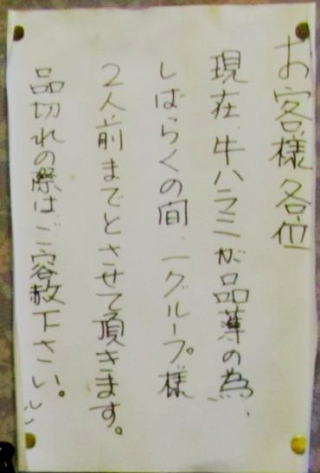 お客様各位
現在、牛ハラミが品薄の為、
しばらくの間、一グループ様
2人前までとさせて頂きます。
品切れの際はご容赦下さい。